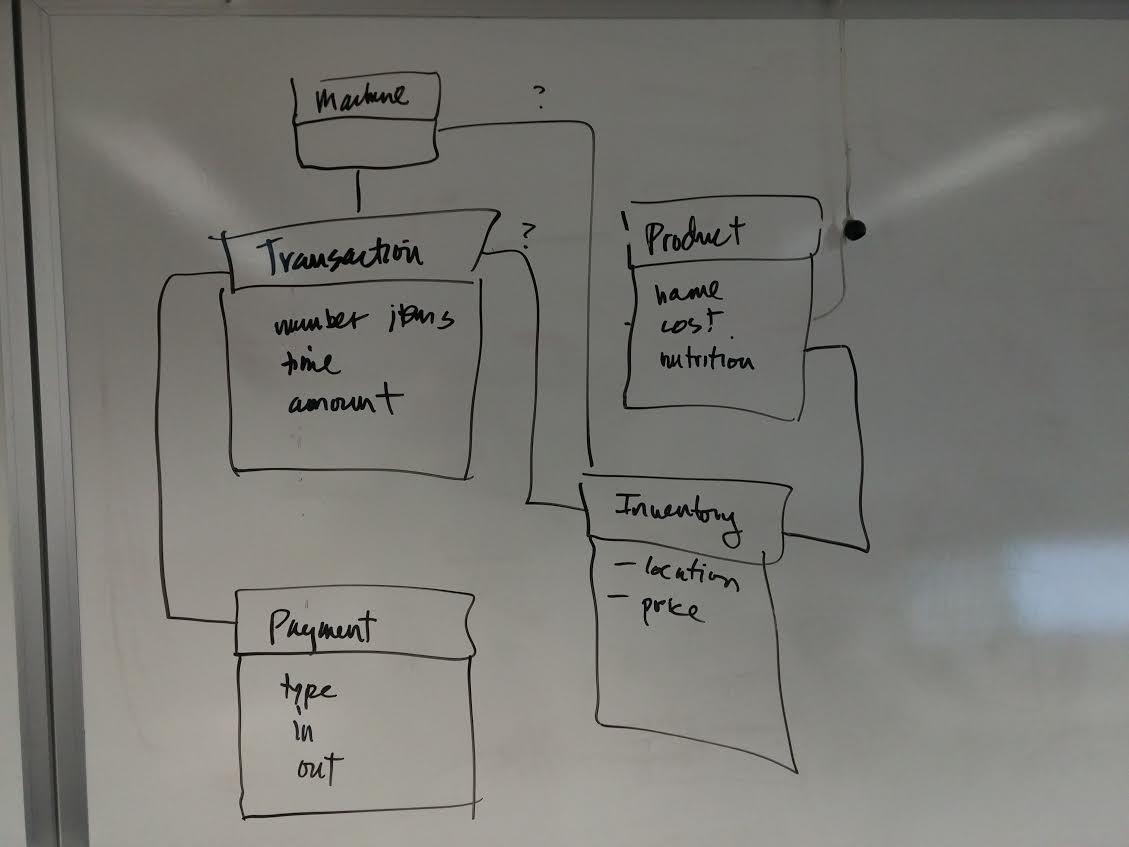 Machine
?
Transaction
number items
time
amount
?
Product
name
cost
nutrition
Inventory
- location
- price
Payment
type
in
out